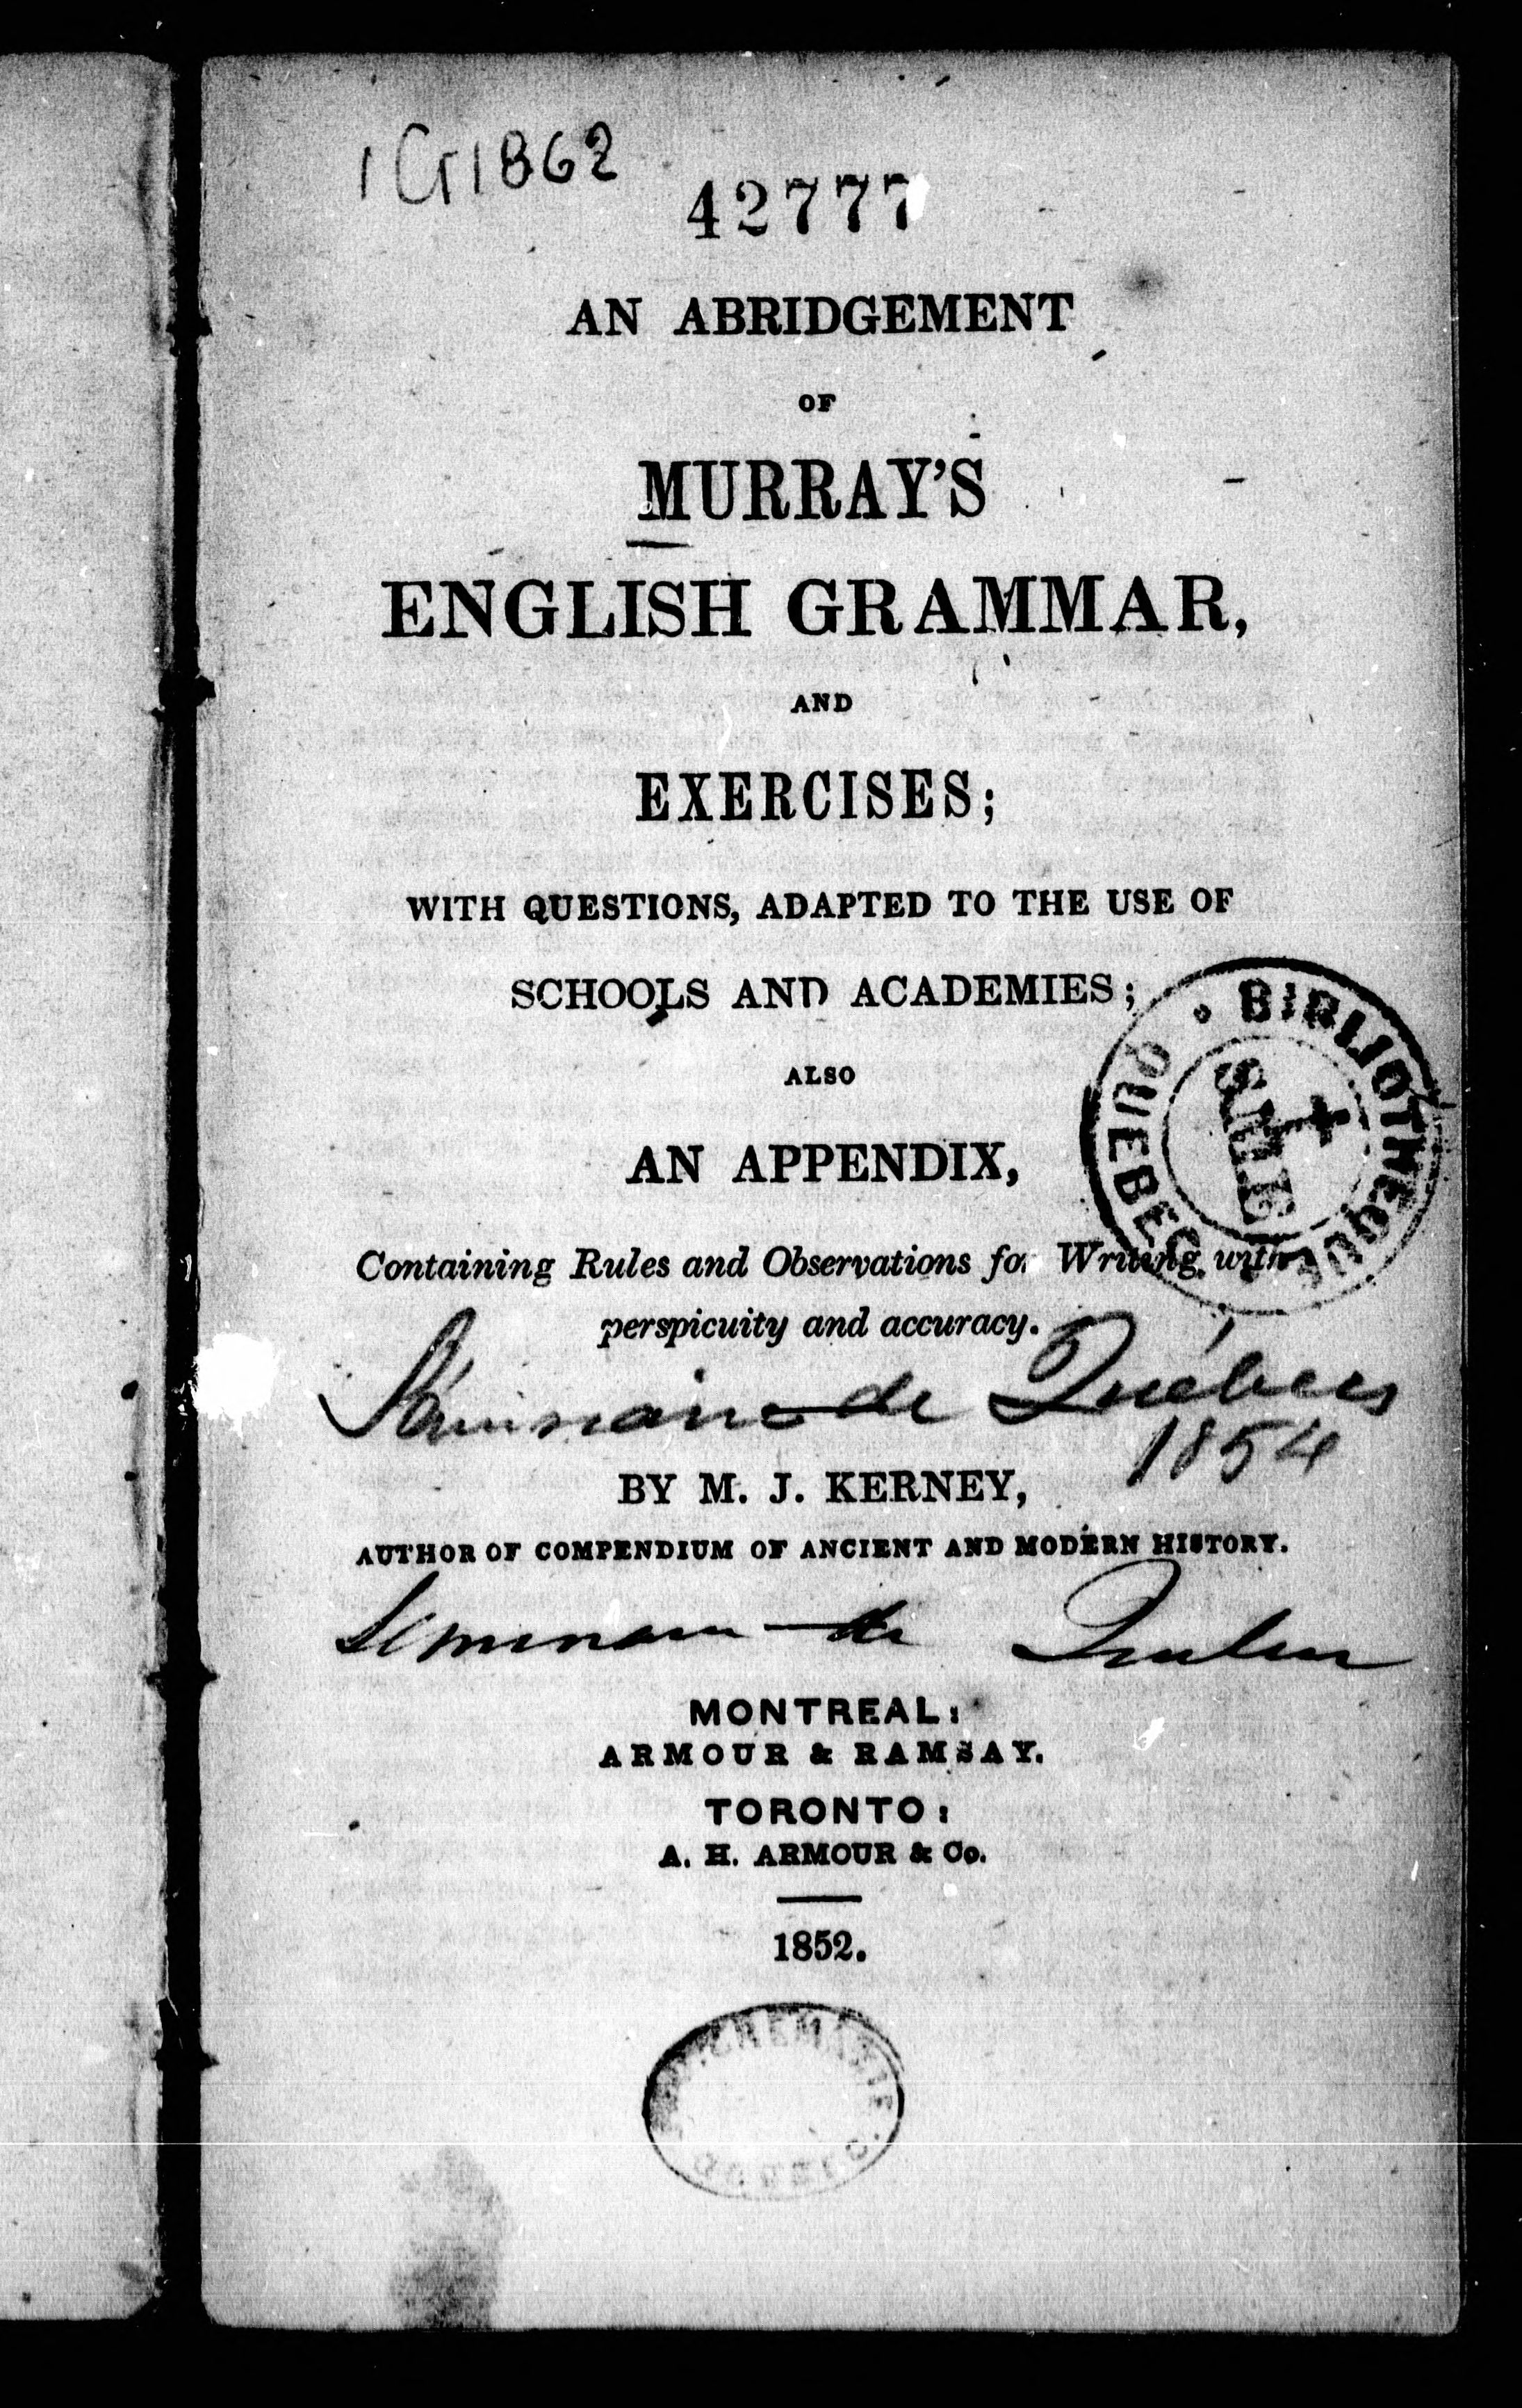 1G1862
42777
AN ABRIDGEMENT
OF
MURRAY'S
ENGLISH GRAMMAR,
AND
EXERCISES;
WITH QUESTIONS, ADAPTED TO THE USE OF
SCHOOLS AND ACADEMIES;
ALSO
AN APPENDIX,
BIBLIOTHEQUE
QUEBEC
S.M.E
Containing Rules and Observations for Writing with
perspicuity and accuracy.
Séminaire de Québec
1854
BY M. J. KERNEY,
AUTHOR OF COMPENDIUM OF ANCIENT AND MODERN HISTORY.
Seminaire de Quebec
MONTREAL:
ARMOUR & RAMSAY.
TORONTO:
A. H. ARMOUR & Co.
1852.
CREMAZIE
QUEBEC